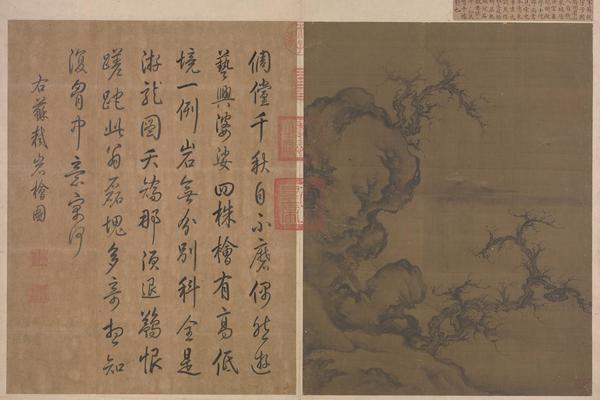 倜儻千秋自不磨偶然遊
藝興婆娑四株檜有高低
境一例岩無分別科全是
游龍圖夭矯那須退鷁恨
蹉跎此翁磊塊多奇想知
復胷中意寓何
右蘇軾岩檜圖